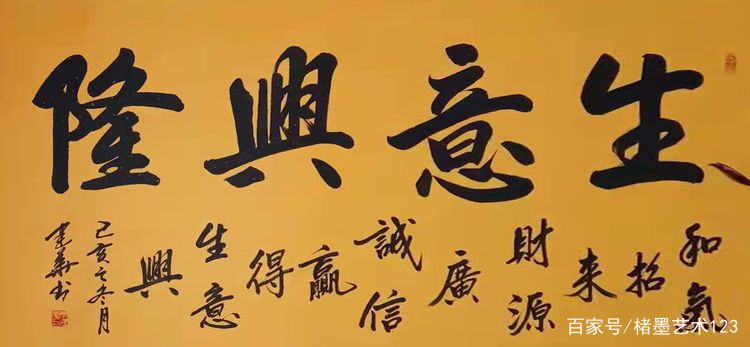 生意興隆
和氣招来財源廣
誠信贏得生意興
己亥之冬月
建華书
百家号/楮墨艺术123